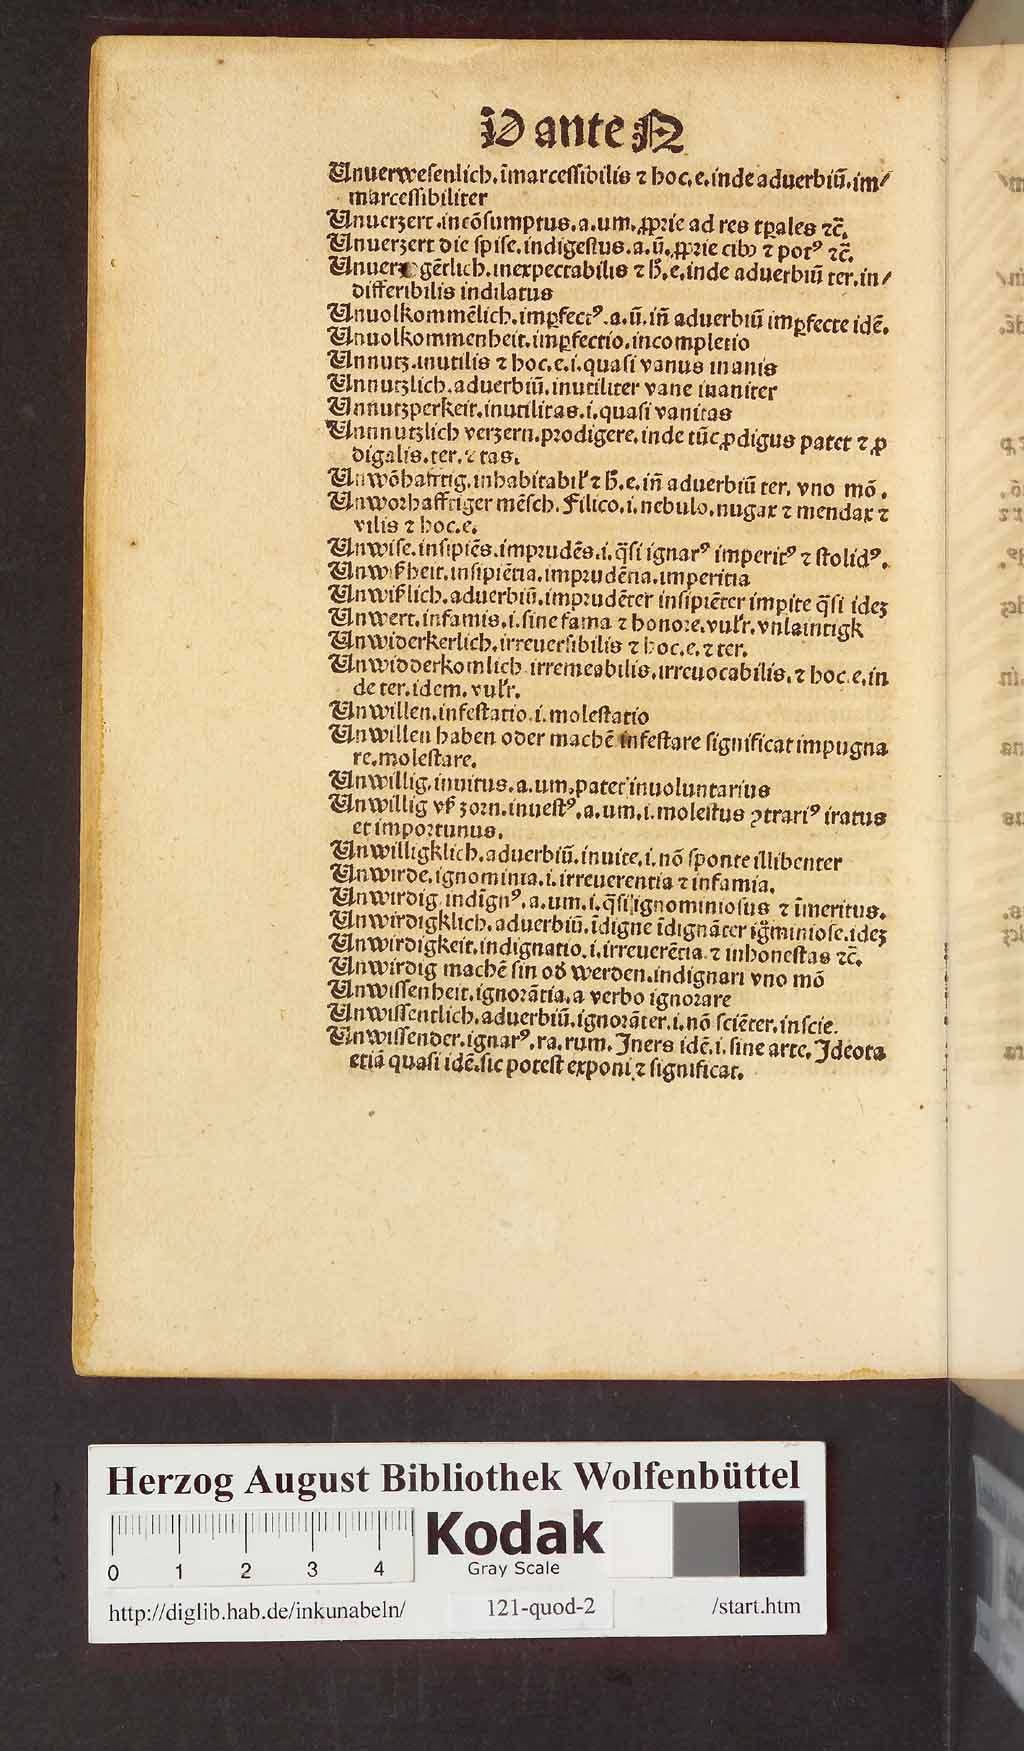 V ante N
Unuerwesenlich. īmarcessibilis ⁊ hoc. e. inde aduerbiū. im/
marcessibiliter
Unuerzert. incōsumptus. a. um. ꝓprie ad res tp̄ales ⁊c̄.
Unuerzert die spise. indigestus. a. ū. ꝓprie cibꝰ ⁊ potꝰ ⁊c̄.
gētlich. inexpectabilis ⁊ h̄. e. inde aduerbiū ter. in/
differibilis indilatus
Unuolkommēlich. imꝑfectꝰ. a. ū. iñ aduerbiū imꝑfecte idē.
Unuolkommenheit. imꝑfectio. incompletio
Unnutz. inutilis ⁊ hoc. e. i. quasi vanus inanis
Unnutzlich. aduerbiū. inutiliter vane inaniter
Unnutzperkeit. inutilitas. i. quasi vanitas
Unnnutzlich verzern. prodigere. inde tūc ꝓdigus patet ⁊ ꝓ
digalis. ter. ⁊ tas.
Unwōhafftig. inhabitabil' ⁊ h̄. e. iñ aduerbiū ter. vno mō.
Unworhafftiger mēsch. Filico. i. nebulo. nugax ⁊ mendax ⁊
vilis ⁊ hoc. e.
Unwise. insipiēs. imprudēs. i. q̄si ignarꝰ imperitꝰ ⁊ stolidꝰ.
Unwißheit. insipiētia. imprudētia. imperitia
Unwißlich. aduerbiū. imprudēter insipiēter impite q̄si idez
Unwert. infamis. i. sine fama ⁊ honore. vul'r. vnlaintigk
Unwiderkerlich. irreuersibilis ⁊ hoc. e. ⁊ ter.
Unwidderkomlich irremeabilis. irreuocabilis. ⁊ hoc. e. in
de ter. idem. vul'r.
Unwillen. infestatio. i. molestatio
Unwillen haben oder machē infestare significat impugna
re. molestare.
Unwillig. inuitus. a. um. patet inuoluntarius
Unwillig vß zorn. inuestꝰ. a. um. i. molestus ꝯtrariꝰ iratus
et importunus.
Unwilligklich. aduerbiū. inuite. i. nō sponte illibenter
Unwirde. ignominia. i. irreuerentia ⁊ infamia.
Unwirdig indīgnꝰ. a. um. i. q̄si ignominiosus ⁊ īmeritus.
Unwirdigklich. aduerbiū. īdigne īdignāter igͦminiose. idez
Unwirdigkeit. indignatio. i. irreuerētia ⁊ inhonestas ⁊c̄.
Unwirdig machē sin od' werden. indignari vno mō
Unwissenheit. ignorātia. a verbo ignorare
Unwissentlich. aduerbiū. ignorāter. i. nō sciēter. inscie.
Unwissender. ignarꝰ. ra. rum. Iners idē. i. sine arte. Ideota
etiā quasi idē. sic potest exponi ⁊ significat.
Herzog August Bibliothek Wolfenbüttel
0 1 2 3 4
Kodak
Gray Scale
http://diglib.hab.de/inkunabeln/ 121-quod-2 /start.htm